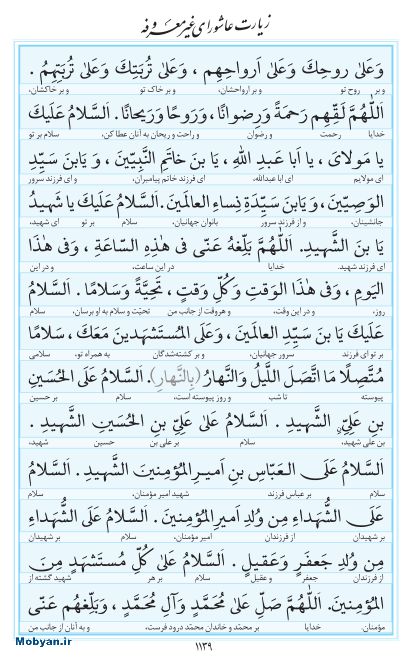 زیارت عاشورای غیر معروفه
وَعَلىٰ روحِكَ وَعَلىٰ اَرواحِهِم ، وَعَلىٰ تُربَتِكَ وَعَلىٰ تُربَتِهِم .
و بر روح تو و بر ارواحشان، و بر خاک تو و بر خاکشان،
اَللّٰهُمَّ لَقِّهِم رَحمَةً وَرِضوانًا ، وَرَوحًا وَرَیحانًا . اَلسَّلامُ عَلَیكَ
خدایا رحمت و رضوان و راحت و ریحان به آنان عطا کن، سلام بر تو
یا مَولایَ ، یا اَبا عَبدِ اللهِ ، یَا بنَ خاتَمِ النَّبِیّینَ ، وَ یَابنَ سَیِّدِ
ای مولایم ای ابا عبدالله، ای فرزند خاتم پیامبران، و ای فرزند سرور
الوَصِیّینَ ، وَیَابنَ سَیِّدَةِ نِساءِ العالَمینَ. اَلسَّلامُ عَلَیكَ یا شَهیدُ
جانشینان، و ای فرزند سرور بانوان جهانیان، سلام بر تو ای شهید،
یَا بنَ الشَّهیدِ. اَللّٰهُمَّ بَلِّغهُ عَنّی فی هٰذِهِ السّاعَةِ ، وَفی هٰذَا
ای فرزند شهید. خدایا در این ساعت، و در این
الیَومِ ، وَفی هٰذَا الوَقتِ وَكُلِّ وَقتٍ ، تَحِیَّةً وَسَلامًا . اَلسَّلامُ
روز، و در این وقت، و هروقت از جانب من تحیّت و سلام به او برسان. سلام
عَلَیكَ یَا بنَ سَیِّدِ العالَمینَ ، وَعَلَى المُستَشهَدینَ مَعَكَ ، سَلامًا
بر تو ای فرزند سرور جهانیان، و بر کشته‌شدگان به همراه تو، سلامی
مُتَّصِلًا مَا اتَّصَلَ اللَّیلُ وَالنَّهارُ (بِالنَّهارِ). اَلسَّلامُ عَلَى الحُسَینِ
پیوسته تا شب و روز پیوسته است، سلام بر حسین
بنِ عَلِیٍّ الشَّهیدِ . اَلسَّلامُ عَلىٰ عَلِیِّ بنِ الحُسَینِ الشَّهیدِ .
بن علی شهید، سلام بر علی بن حسین شهید،
اَلسَّلامُ عَلَى العَبّاسِ بنِ اَمیرِ المُؤمِنینَ الشَّهیدِ . اَلسَّلامُ
سلام بر عباس فرزند شهید امیر مؤمنان، سلام
عَلَى الشُّهَداءِ مِن وُلدِ اَمیرِ المُؤمِنینَ . اَلسَّلامُ عَلَى الشُّهَداءِ
بر شهیدان از فرزندان امیر مؤمنان، سلام بر شهیدان
مِن وُلدِ جَعفَرٍ وَعَقیلٍ . اَلسَّلامُ عَلىٰ كُلِّ مُستَشهَدٍ مِنَ
از فرزندان جعفر و عقیل سلام بر هر شهید گشته از
المُؤمِنینَ. اَللّٰهُمَّ صَلِّ عَلىٰ مُحَمَّدٍ وَآلِ مُحَمَّدٍ ، وَبَلِّغهُم عَنّی
مؤمنان. خدایا بر محمّد و خاندان محمّد درود فرست، و به آنان از جانب من
۱۱۳۹
Mobyan.ir